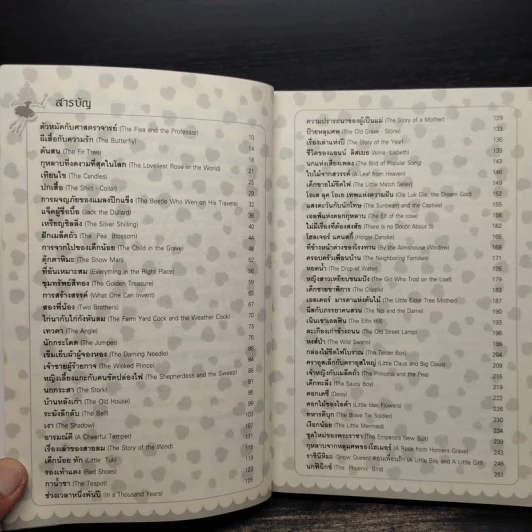 สารบัญ
ตัวหมัดกับศาสตราจารย์ (The Flea and the Professor)
ผีเสื้อกับความรัก (The Butterfly) 10
ต้นสน (The Fir Tree) 14
กุหลาบที่งดงามที่สุดในโลก (The Loveliest Rose in the World)
เทียนไข (The Candles)
ปกเสื้อ (The Shirt - Collar)
การผจญภัยของแมลงปีกแข็ง (The Beetle Who Wen on His Travels)
แจ็คผู้ซื่อบื้อ (Jack the Dullard)
เหรียญชิลลิ่ง (The Silver Shilling)
ฝักเมล็ดถั่ว (The Pea Blossom) 44
การจากไปของเด็กน้อย (The Child in the Grave)
ตุ๊กตาหิมะ (The Snow Man)
ที่อันเหมาะสม (Everything in the Right Place) 56
ขุมทรัพย์สีทอง (The Golden Treasure)
การสร้างสรรค์ (What One Can Invent)
สองพี่น้อง (Two Brothers) 67
ไก่นากับไก่กังหันลม (The Farm Yard Cock and the Weather Cock) 70
เทวดา (The Angel) 73
นักกระโดด (The Jumper) 76
เข็มเย็บผ้าผู้จองหอง (The Darning Needle)
เจ้าชายผู้ร้ายกาจ (The Wicked Prince)
หญิงเลี้ยงแกะกับคนขัดปล่องไฟ (The Shepherdess and the Sweep)
นกกระสา (The Stork)
บ้านหลังเก่า (The Old House)
ระฆังลึกลับ (The Bell) 103
เงา (Shadow) 107
อารมณ์ดี (A Cheerful Temper) 111
เรื่องเล่าของสายลม (The Story of the Wind)
เด็กน้อย ทัก (Little Tuk)
รองเท้าแดง (Red Shoes)
กาน้ำชา (The Teapot)
ช่วงเวลาหนึ่งพันปี (In a Thousand Years)
ความปรารถนาของผู้เป็นแม่ (The Story of a Mother) 129
ป้ายหลุมศพ (The Old Grave - Stone) 133
เรื่องเล่าแห่งปี (The Story of the Year) 136
ชีวิตของแอนน์ ลิสเบธ (Anne Lisbeth) 139
นกแห่งเสียงเพลง (The Bird of Popular Song) 143
ใบไม้จากสวรรค์ (A Leaf from Heaven) 146
เด็กขายไม้ขีดไฟ (The Little Match Seller) 149
โอเล ลุค โอเย เทพแห่งความฝัน (Ole Luk Oie, the Dream God) 152
แสงตะวันกับนักโทษ (The Sunbeam and the Captive) 155
เอลฟ์แห่งดอกกุหลาบ (The Elf of the rose)
ไม่มีเรื่องที่ต้องสงสัย (There is no Doubt About It)
โฮลเจอร์ แดนสก์ (Holger Danske)
ที่ข้างหน้าต่างของโรงทาน (By the Almshouse Window)
ครอบครัวเพื่อนบ้าน (The Neighboring Families)
หยดน้ำ (The Drop of Water)
หญิงสาวเหยียบขนมปัง (The Girl Who Trod on the Loaf)
เด็กชายขาพิการ (The Cripple)
เอลเดอร์ มารดาแห่งต้นไม้ (The Little Elder Tree Mother) 187
นิสกับภรรยาคนสวน (The Nis and the Dame)
เนินเขาเอลฟิน (The Elfin Hill)
ตะเกียงเก่าข้างถนน (The Old Street Lamp) 196
หงส์ป่า (The Wild Swans) 199
กล่องไม้ขีดไฟโบราณ (The Tinder Box) 204
คราอุสเล็กกับคราอุสใหญ่ (Little Claus and Big Claus) 209
เจ้าหญิงกับเมล็ดถั่ว (The Princess and the Pea) 215
เด็กทะลึ่ง (The Saucy Boy) 219
ดอกเดซี่ (Daisy)
ดอกไม้ของไอด้า (Little Ida's Flowers)
ทหารดีบุก (The Brave Tin Soldier) 230
เงือกน้อย (The Little Mermaid) 234
ชุดใหม่ของพระราชา (The Emperor's New Suit)
กุหลาบจากหลุมศพของโฮเมอร์ (A Rose from Homer's Grave) 243
ราชินีหิมะ (Snow Queen) ตอนเพื่อนรัก (A Little Boy and A Little Girl) 246
นกฟีนิกซ์ (The Phoenix Bird) 251